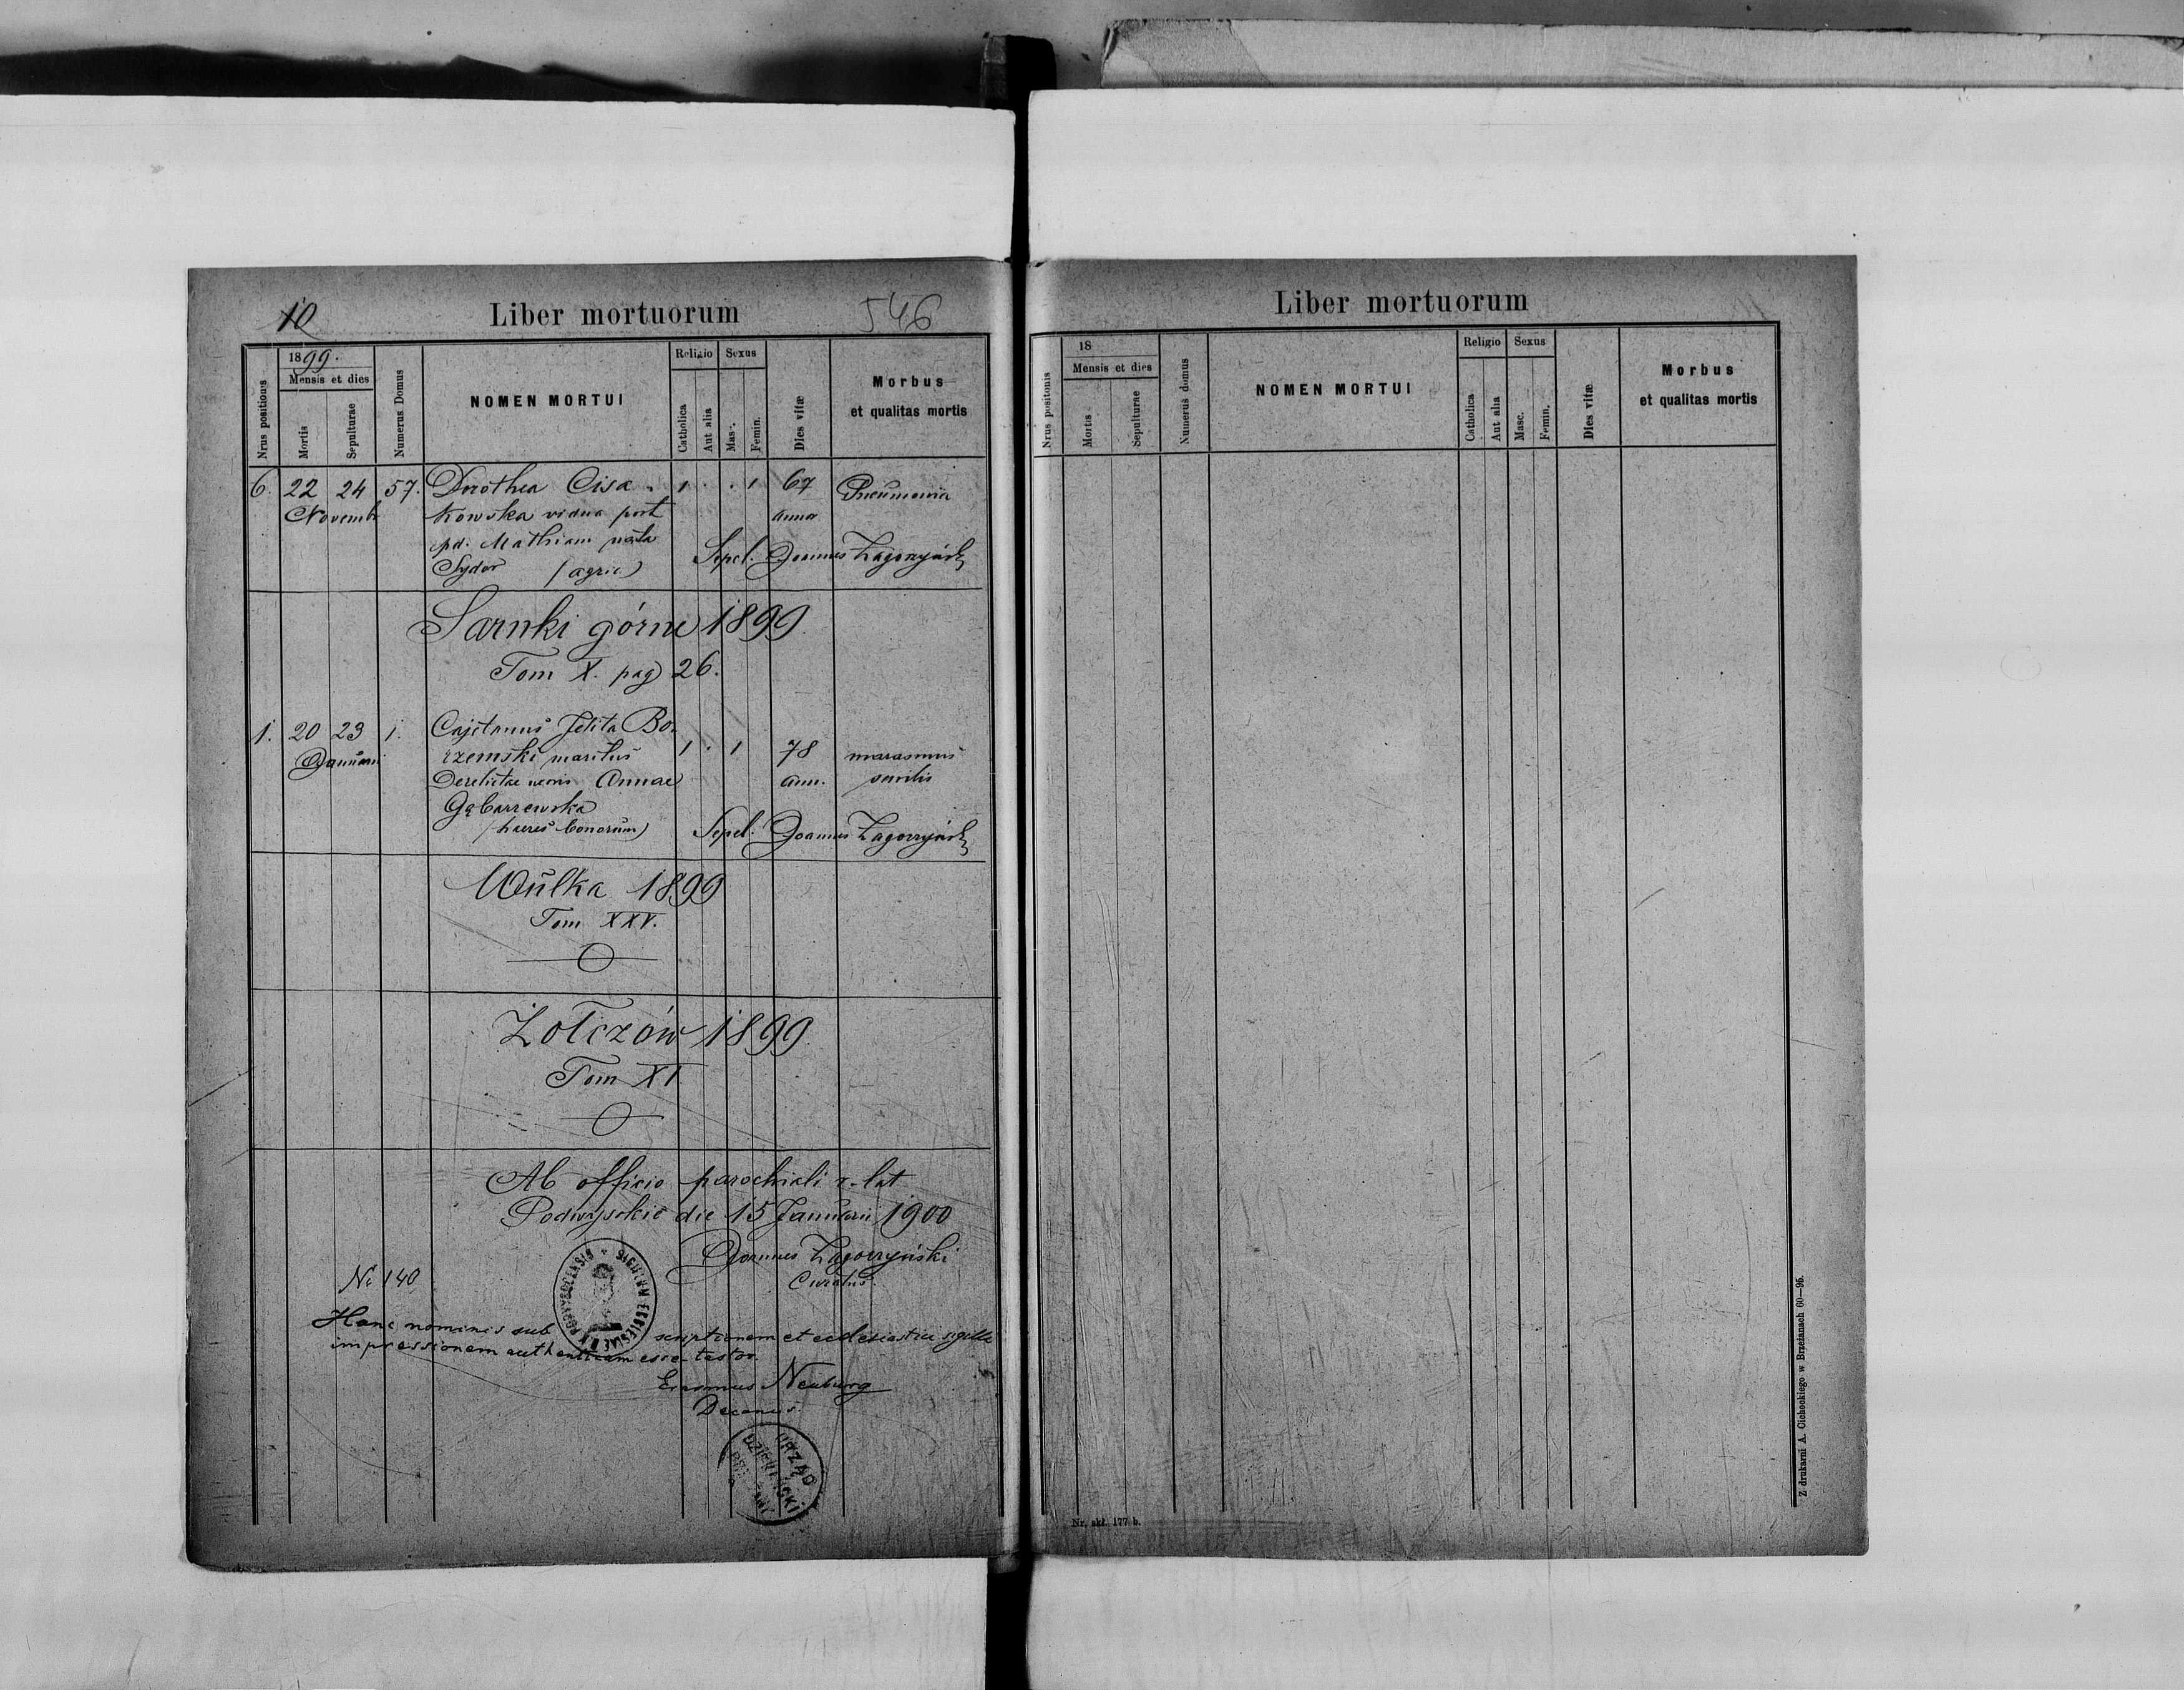 10
Liber mortuorum
546
Nrus positionis
1899.
Mensis et dies
Mortis
Sepulturae
Numerus Domus
NOMEN MORTUI
Religio
Catholica
Aut alia
Sexus
Masc.
Femin.
Dies vitæ
Morbus
et qualitas mortis
6. 22 24 57. Dorothea Cisa- 1 . . 1 67 Pneumonia
Novemb kowska vidua post anno
pd. Mathiam nata
Sydor (agric) Sepel. Joannes Zagorzyński
Sarnki górne 1899.
Tom X. pag 26.
1. 20 23 1. Cajetanus Jelita Bo-
Januarii rzemski maritus 1 . 1 78 marasmus
Derelictae uxoris Annae ann. senilis
Gąbarzewska
(haeres bonorum) Sepel. Joannes Zagorzyński
Wulka 1899
Tom XXV.
Żołczów 1899.
Tom XI
Ab officio parochiali r. lat
Podwysokie die 15 Januarii 1900
Joannes Zagorzyński
Curatus.
SIGILLUM ECCLESIAE PODVYSOCENSIS
Nr 140
Hanc nominis subscriptionem et ecclesiastici sigilli
impressionem authenticam esse testor.
Erasmus Neuburg
Decanus.
URZĄD
DZIEKAŃSKI
Liber mortuorum
Nrus positonis
18
Mensis et dies
Mortis
Sepulturae
Numerus domus
NOMEN MORTUI
Religio
Catholica
Aut alia
Sexus
Masc.
Femin.
Dies vitæ
Morbus
et qualitas mortis
Nr. skł. 177 b.
Z drukarni A. Cichockiego w Brzeżanach 60—95.